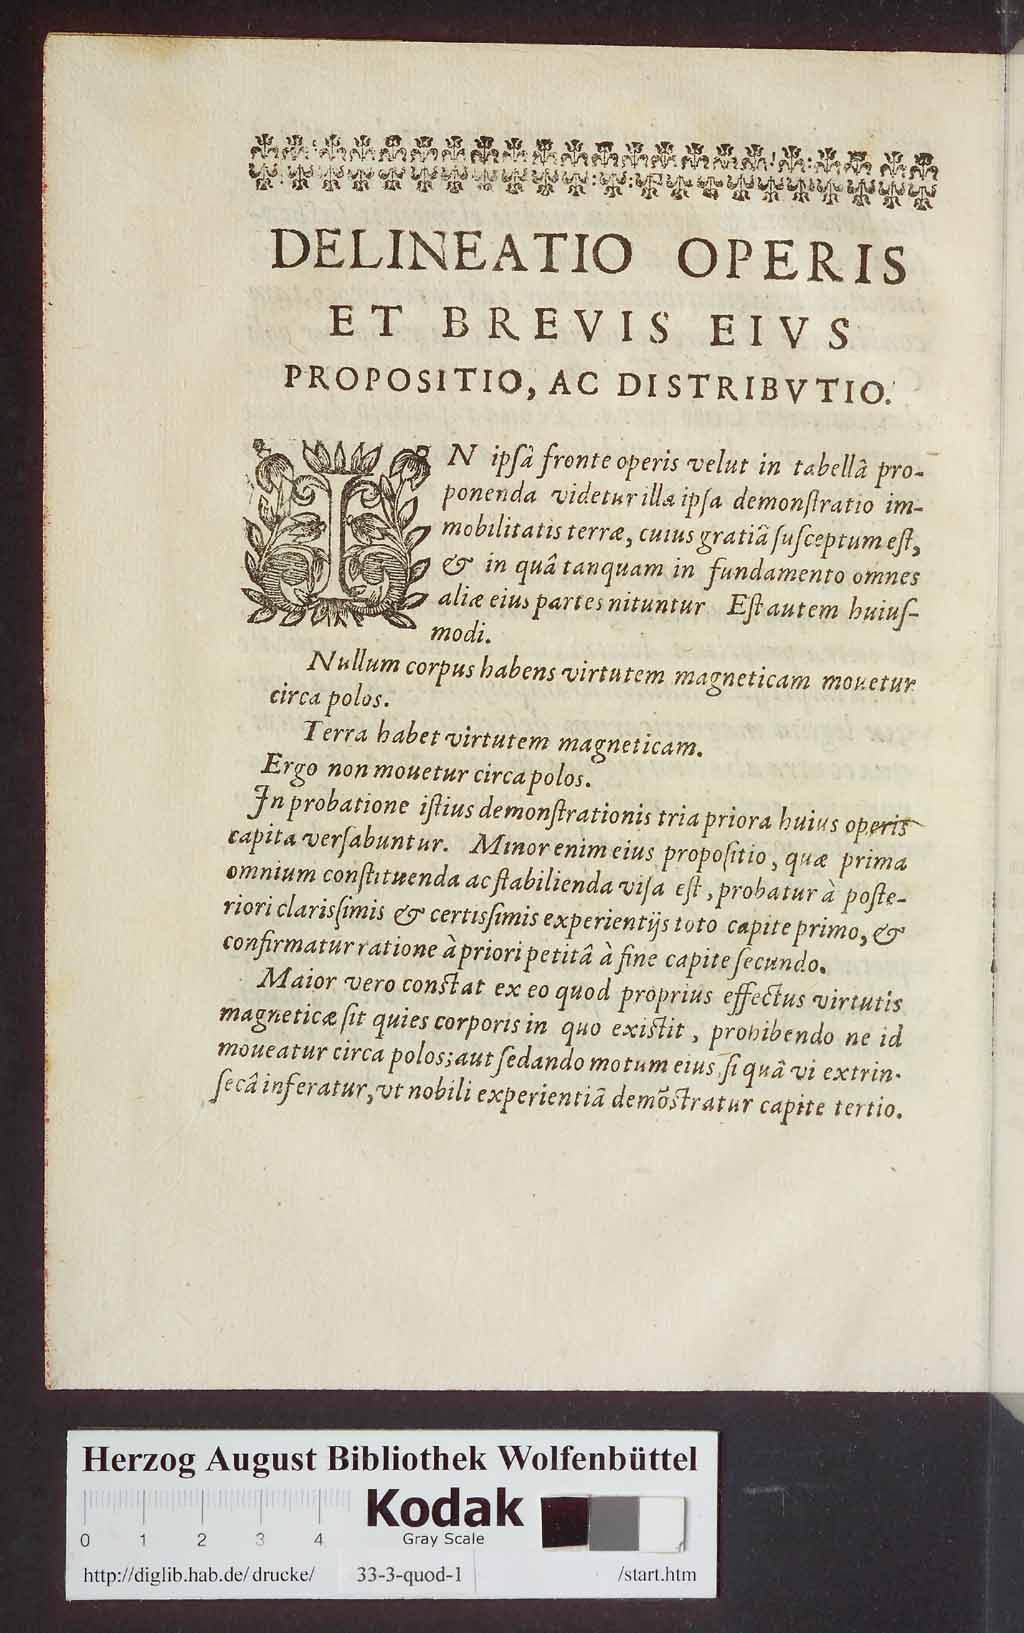 DELINEATIO OPERIS
ET BREVIS EIVS
PROPOSITIO, AC DISTRIBVTIO.
IN ipſâ fronte operis velut in tabellâ pro-
ponenda videtur illa ipſa demonſtratio im-
mobilitatis terræ, cuius gratiâ ſuſceptum eſt,
& in quâ tanquam in fundamento omnes
aliæ eius partes nituntur Eſt autem huiuſ-
modi.
Nullum corpus habens virtutem magneticam mouetur
circa polos.
Terra habet virtutem magneticam.
Ergo non mouetur circa polos.
In probatione iſtius demonſtrationis tria priora huius operis
capita verſabuntur. Minor enim eius propoſitio, quæ prima
omnium conſtituenda ac ſtabilienda viſa eſt, probatur à poſte-
riori clariſſimis & certiſſimis experientijs toto capite primo, &
confirmatur ratione à priori petitâ à fine capite ſecundo.
Maior vero conſtat ex eo quod proprius effectus virtutis
magneticæ ſit quies corporis in quo exiſtit, prohibendo ne id
moueatur circa polos; aut ſedando motum eius, ſi quâ vi extrin-
ſecâ inferatur, vt nobili experientiâ demõſtratur capite tertio.
Herzog August Bibliothek Wolfenbüttel
Kodak
Gray Scale
0 1 2 3 4
http://diglib.hab.de/drucke/ 33-3-quod-1 /start.htm